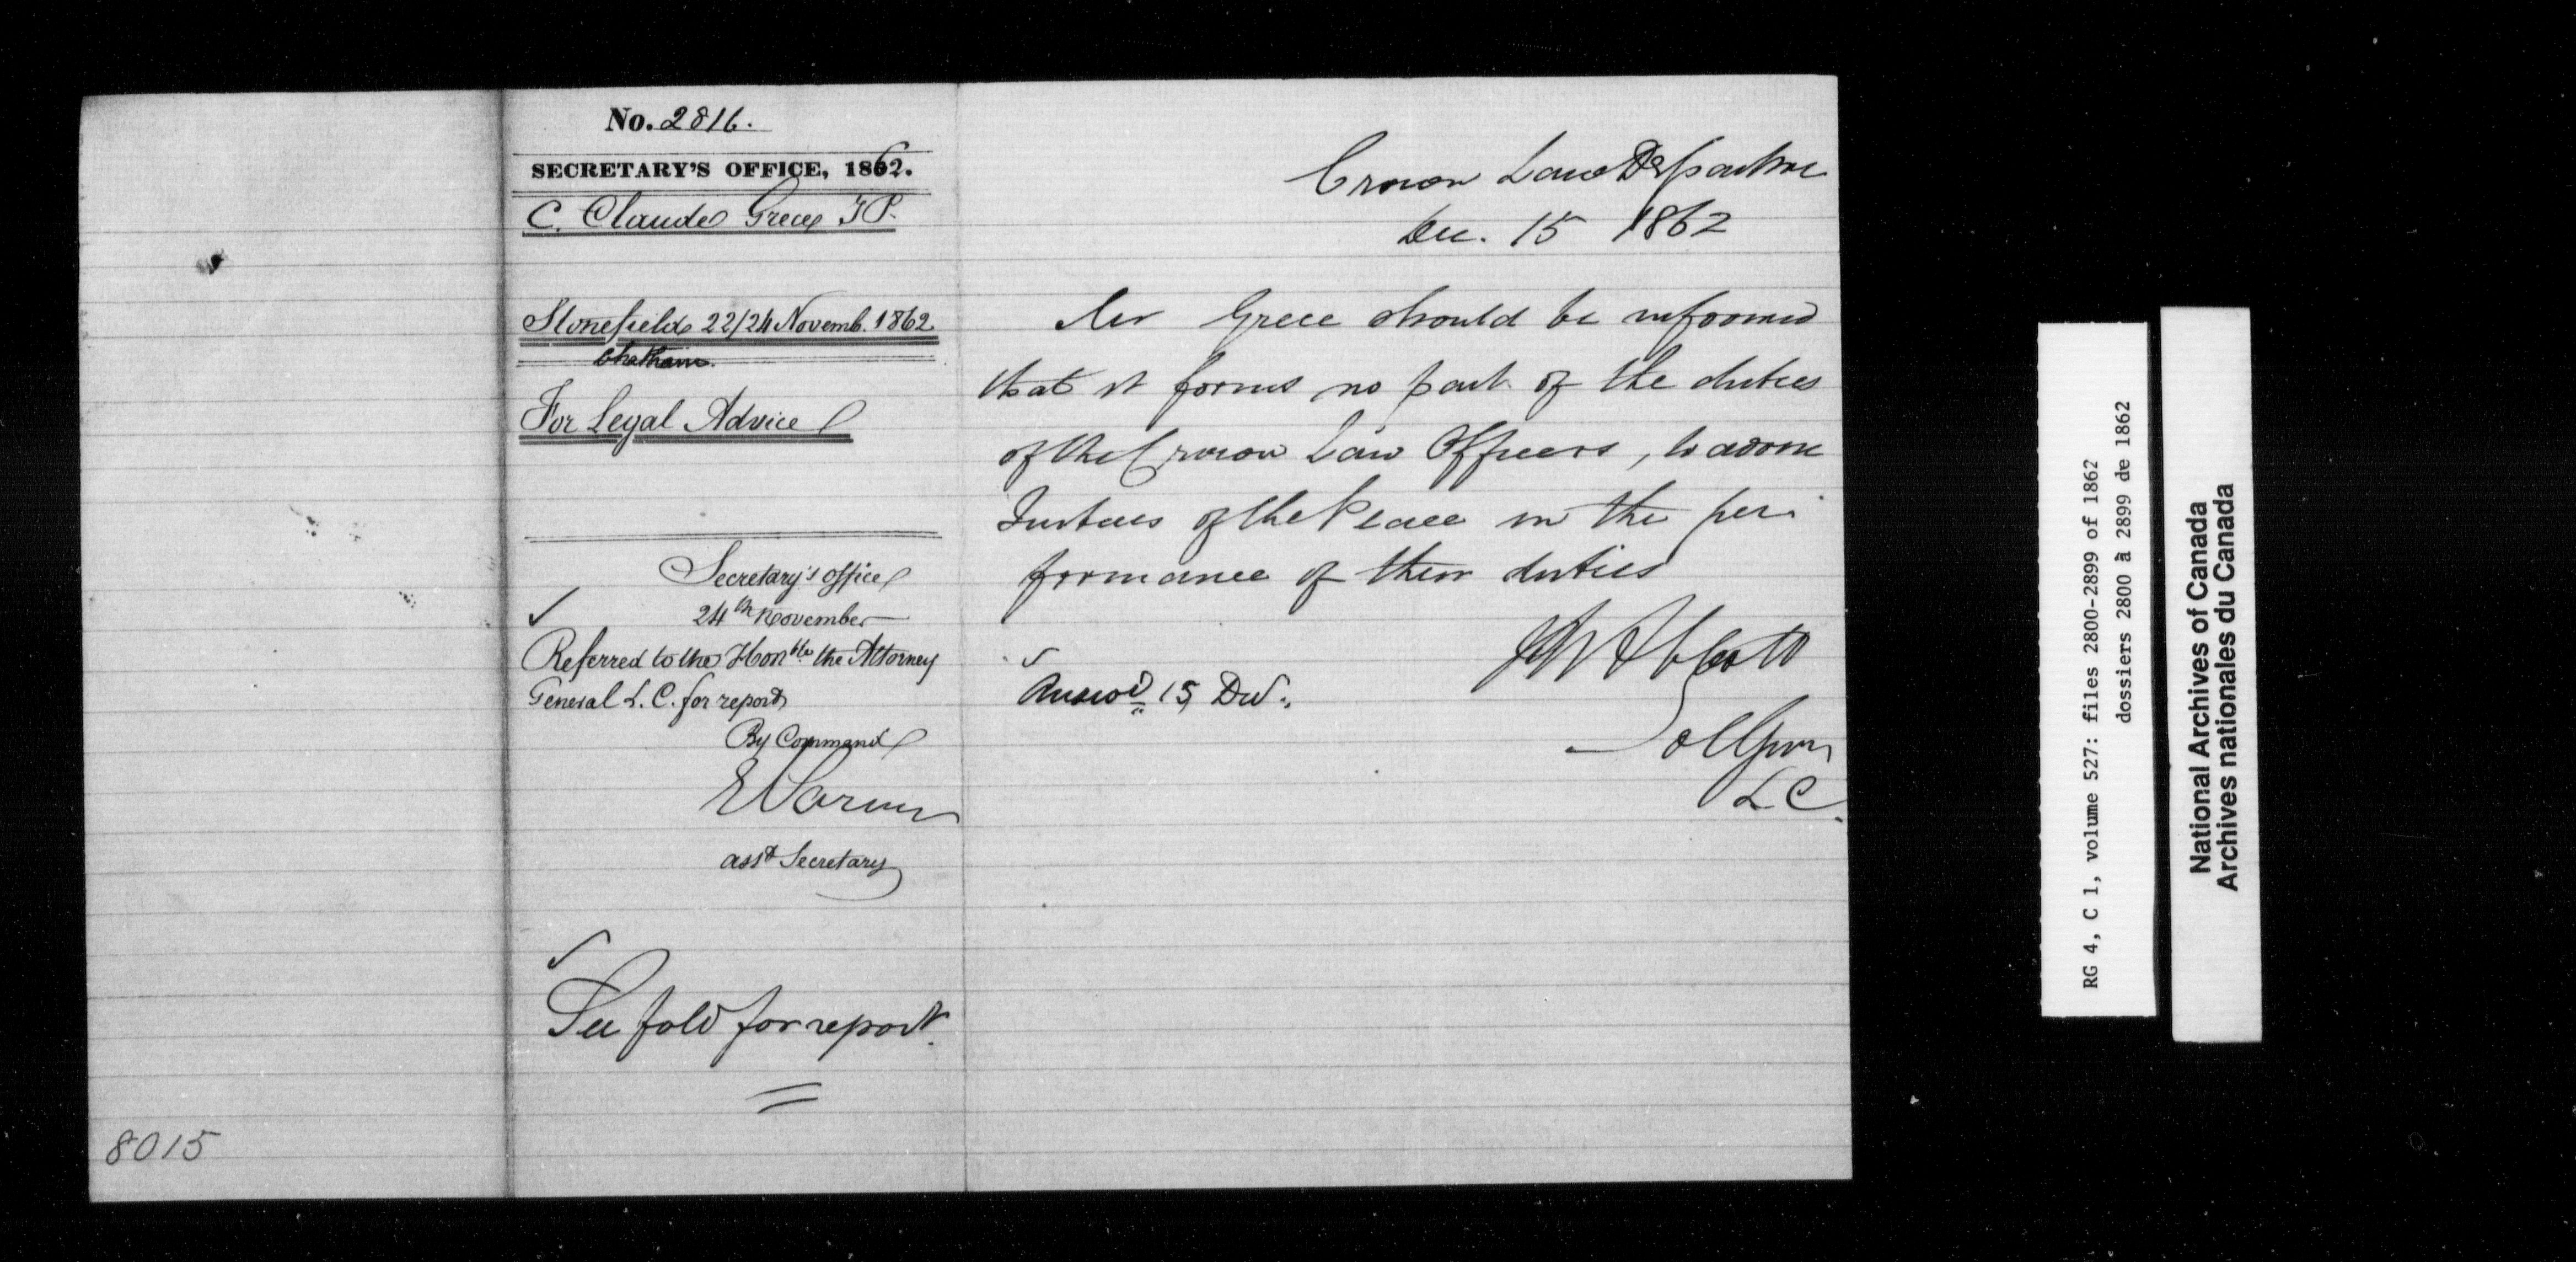 No. 2816.
SECRETARY'S OFFICE, 1862.
C. Claude Grece J P.
Stonefield 22/24 Novemb. 1862
Chatham.
For Legal Advice
Secretary's office
24th November
Referred to the Honble the Attorney
General L. C. for report
By Command
E
Asst Secretary
See fold for report.
8015
Crown Law Departme
Dec. 15 1862
Mr Grece should be informed
that it forms no part of the duties
of the Crown Law Officers, to advise
Justices of the Peace in the per-
formance of their duties
JJC Abbott
Sol Gen
L C.
Answd 15 Dec.
RG 4, C 1, volume 527: files 2800-2899 of 1862
dossiers 2800 à 2899 de 1862
National Archives of Canada
Archives nationales du Canada